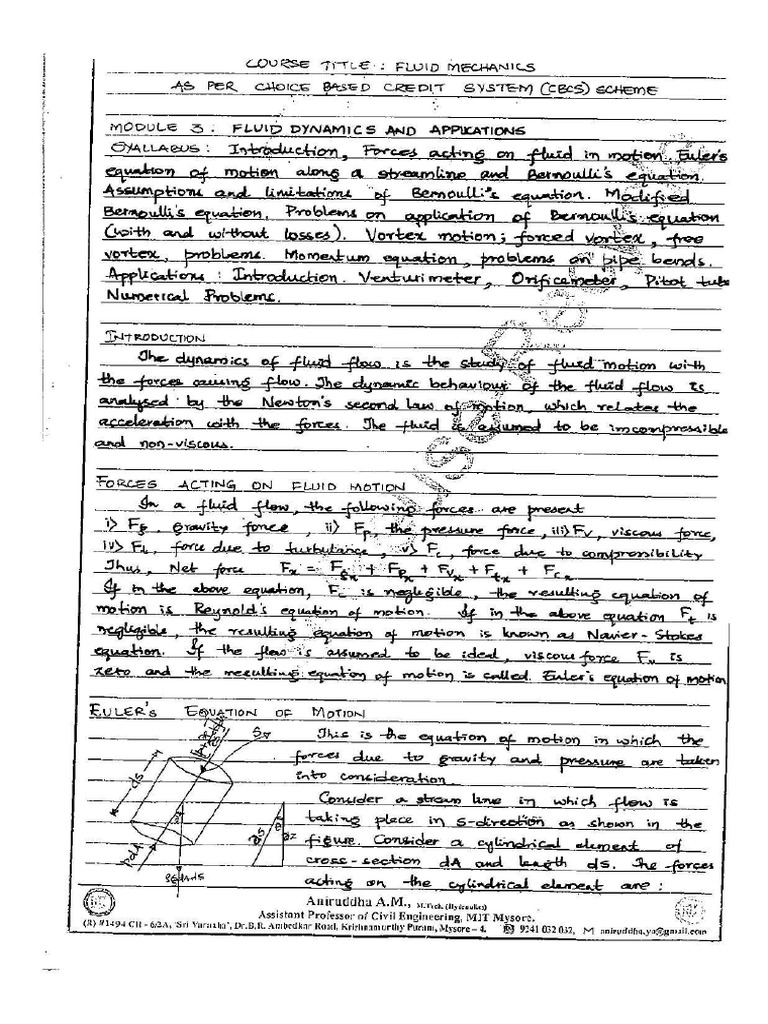 COURSE TITLE : FLUID MECHANICS
AS PER CHOICE BASED CREDIT SYSTEM (CBCS) SCHEME
MODULE 3 : FLUID DYNAMICS AND APPLICATIONS
SYALLABUS : Introduction, Forces acting on fluid in motion. Euler's
equation of motion along a streamline and Bernoulli's equation.
Assumptions and limitations of Bernoulli's equation. Modified
Bernoulli's equation. Problems on application of Bernoulli's equation
(with and without losses). Vortex motion; forced vortex, free
vortex, problems. Momentum equation, problems on pipe bends.
Applications : Introduction. Venturimeter, Orificemeter, Pitot tube
Numerical Problems.
INTRODUCTION
The dynamics of fluid flow is the study of fluid motion with
the forces causing flow. The dynamic behaviour of the fluid flow is
analysed by the Newton's second law of motion, which relates the
acceleration with the forces. The fluid is assumed to be incompressible
and non-viscous.
FORCES ACTING ON FLUID MOTION
In a fluid flow, the following forces are present
i) Fg, gravity force, ii) Fp, the pressure force, iii) Fv, viscous force,
iv) Ft, force due to turbulance, v) Fc, force due to compressibility
Thus, Net force Fx = Fgx + Fpx + Fvx + Ftx + Fcx
If in the above equation, Fc is neglegible, the resulting equation of
motion is Reynold's equation of motion. If in the above equation Ft is
neglegible, the resulting equation of motion is known as Navier-Stokes
equation. If the flow is assumed to be ideal, viscous force Fv is
zero and the resulting equation of motion is called Euler's equation of motion
EULER'S EQUATION OF MOTION
This is the equation of motion in which the
forces due to gravity and pressure are taken
into consideration
Consider a stream line in which flow is
taking place in s-direction as shown in the
figure. Consider a cylindrical element of
cross-section dA and length ds. The forces
acting on the cylindrical element are :
ds
pdA
ρgdAds
θ
ds
dz
Aniruddha A.M., M.Tech. (Hydraulics)
Assistant Professor of Civil Engineering, MIT Mysore.
(R) #1494 CH - 6/2A, Dr.B.R. Ambedkar Road, Krishnamurthy Puram, Mysore – 4. 9241 032 032, aniruddha.ya@gmail.com